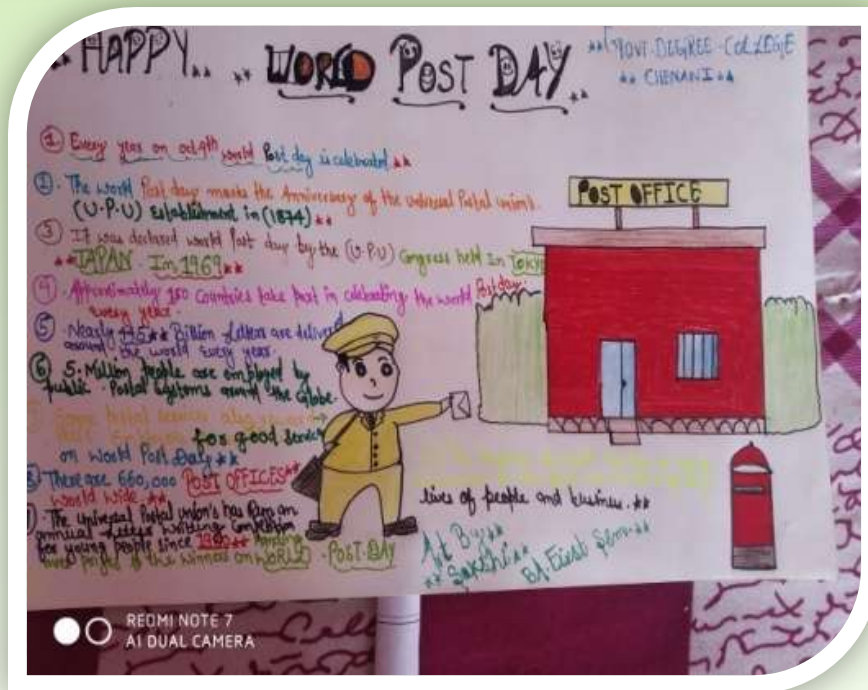 HAPPY.. WORLD POST DAY.
GOVT. DEGREE COLLEGE
CHENANI
① Every year on oct 9th world Post day is celebrated
②. The world Post day marks the Anniversary of the universal Postal union's
(U.P.U) Establishment in (1874)
③ It was declared world Post day by the (U.P.U) Congress held In TOKYO
JAPAN. In 1969
④. Approximately 150 Countries take Part in celebrating the world Postday.
every year.
⑤. Nearly Billion Letters are delivered
around the world every year.
⑥ 5. Million People are employed by
public Postal Systems around the Globe.
Some Postal services also
their Employees for good Service
on world Post Day
There are 660,000 POST OFFICES
world wide.
The universal Postal union's has Run an
annual Letter writing Competition
for young people since
the winners on WORLD POST-DAY
POST OFFICE
lives of people and business.
Art By:
Sakshi
First Sem
REDMI NOTE 7
AI DUAL CAMERA